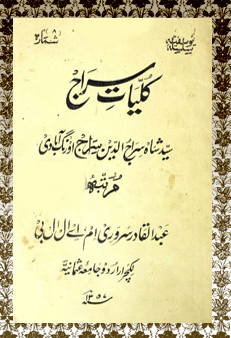 سلسلہ یوسفیہ
شمارہ ۸
کلیات سراج
سید شاہ سراج الدین سراج اورنگ آبادی
مرتبہ
عبدالقادر سروری ام، اے ال ال بی
لکچرار اردو جامعہ عثمانیہ
۱۳۵۷